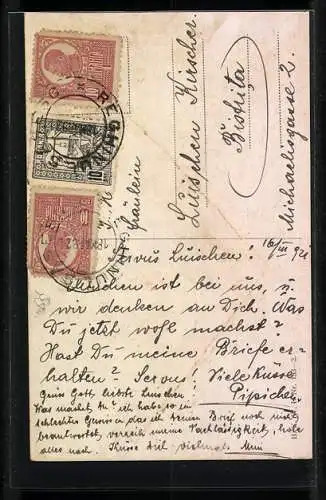 REGHINUL
Fräulein
Luischen Kirscher
Bistrița
Michaelisgasse 2.
16/III 921
Servus Luischen!
ist bei uns, u
wir denken an Dich. Was
Du jetzt wohl machst?
Hast Du meine Briefe er-
halten? Servus! Viele Küsse
Pipsichen
Grüss Gott liebste Luischen
Was machst Du? ich habe so ein
schlechtes Gewissen das ich Deinen Brief noch nicht
beantwortet, verzeih meine Nachlässigkeit, hole
alles nach. Küsse Dich vielmals